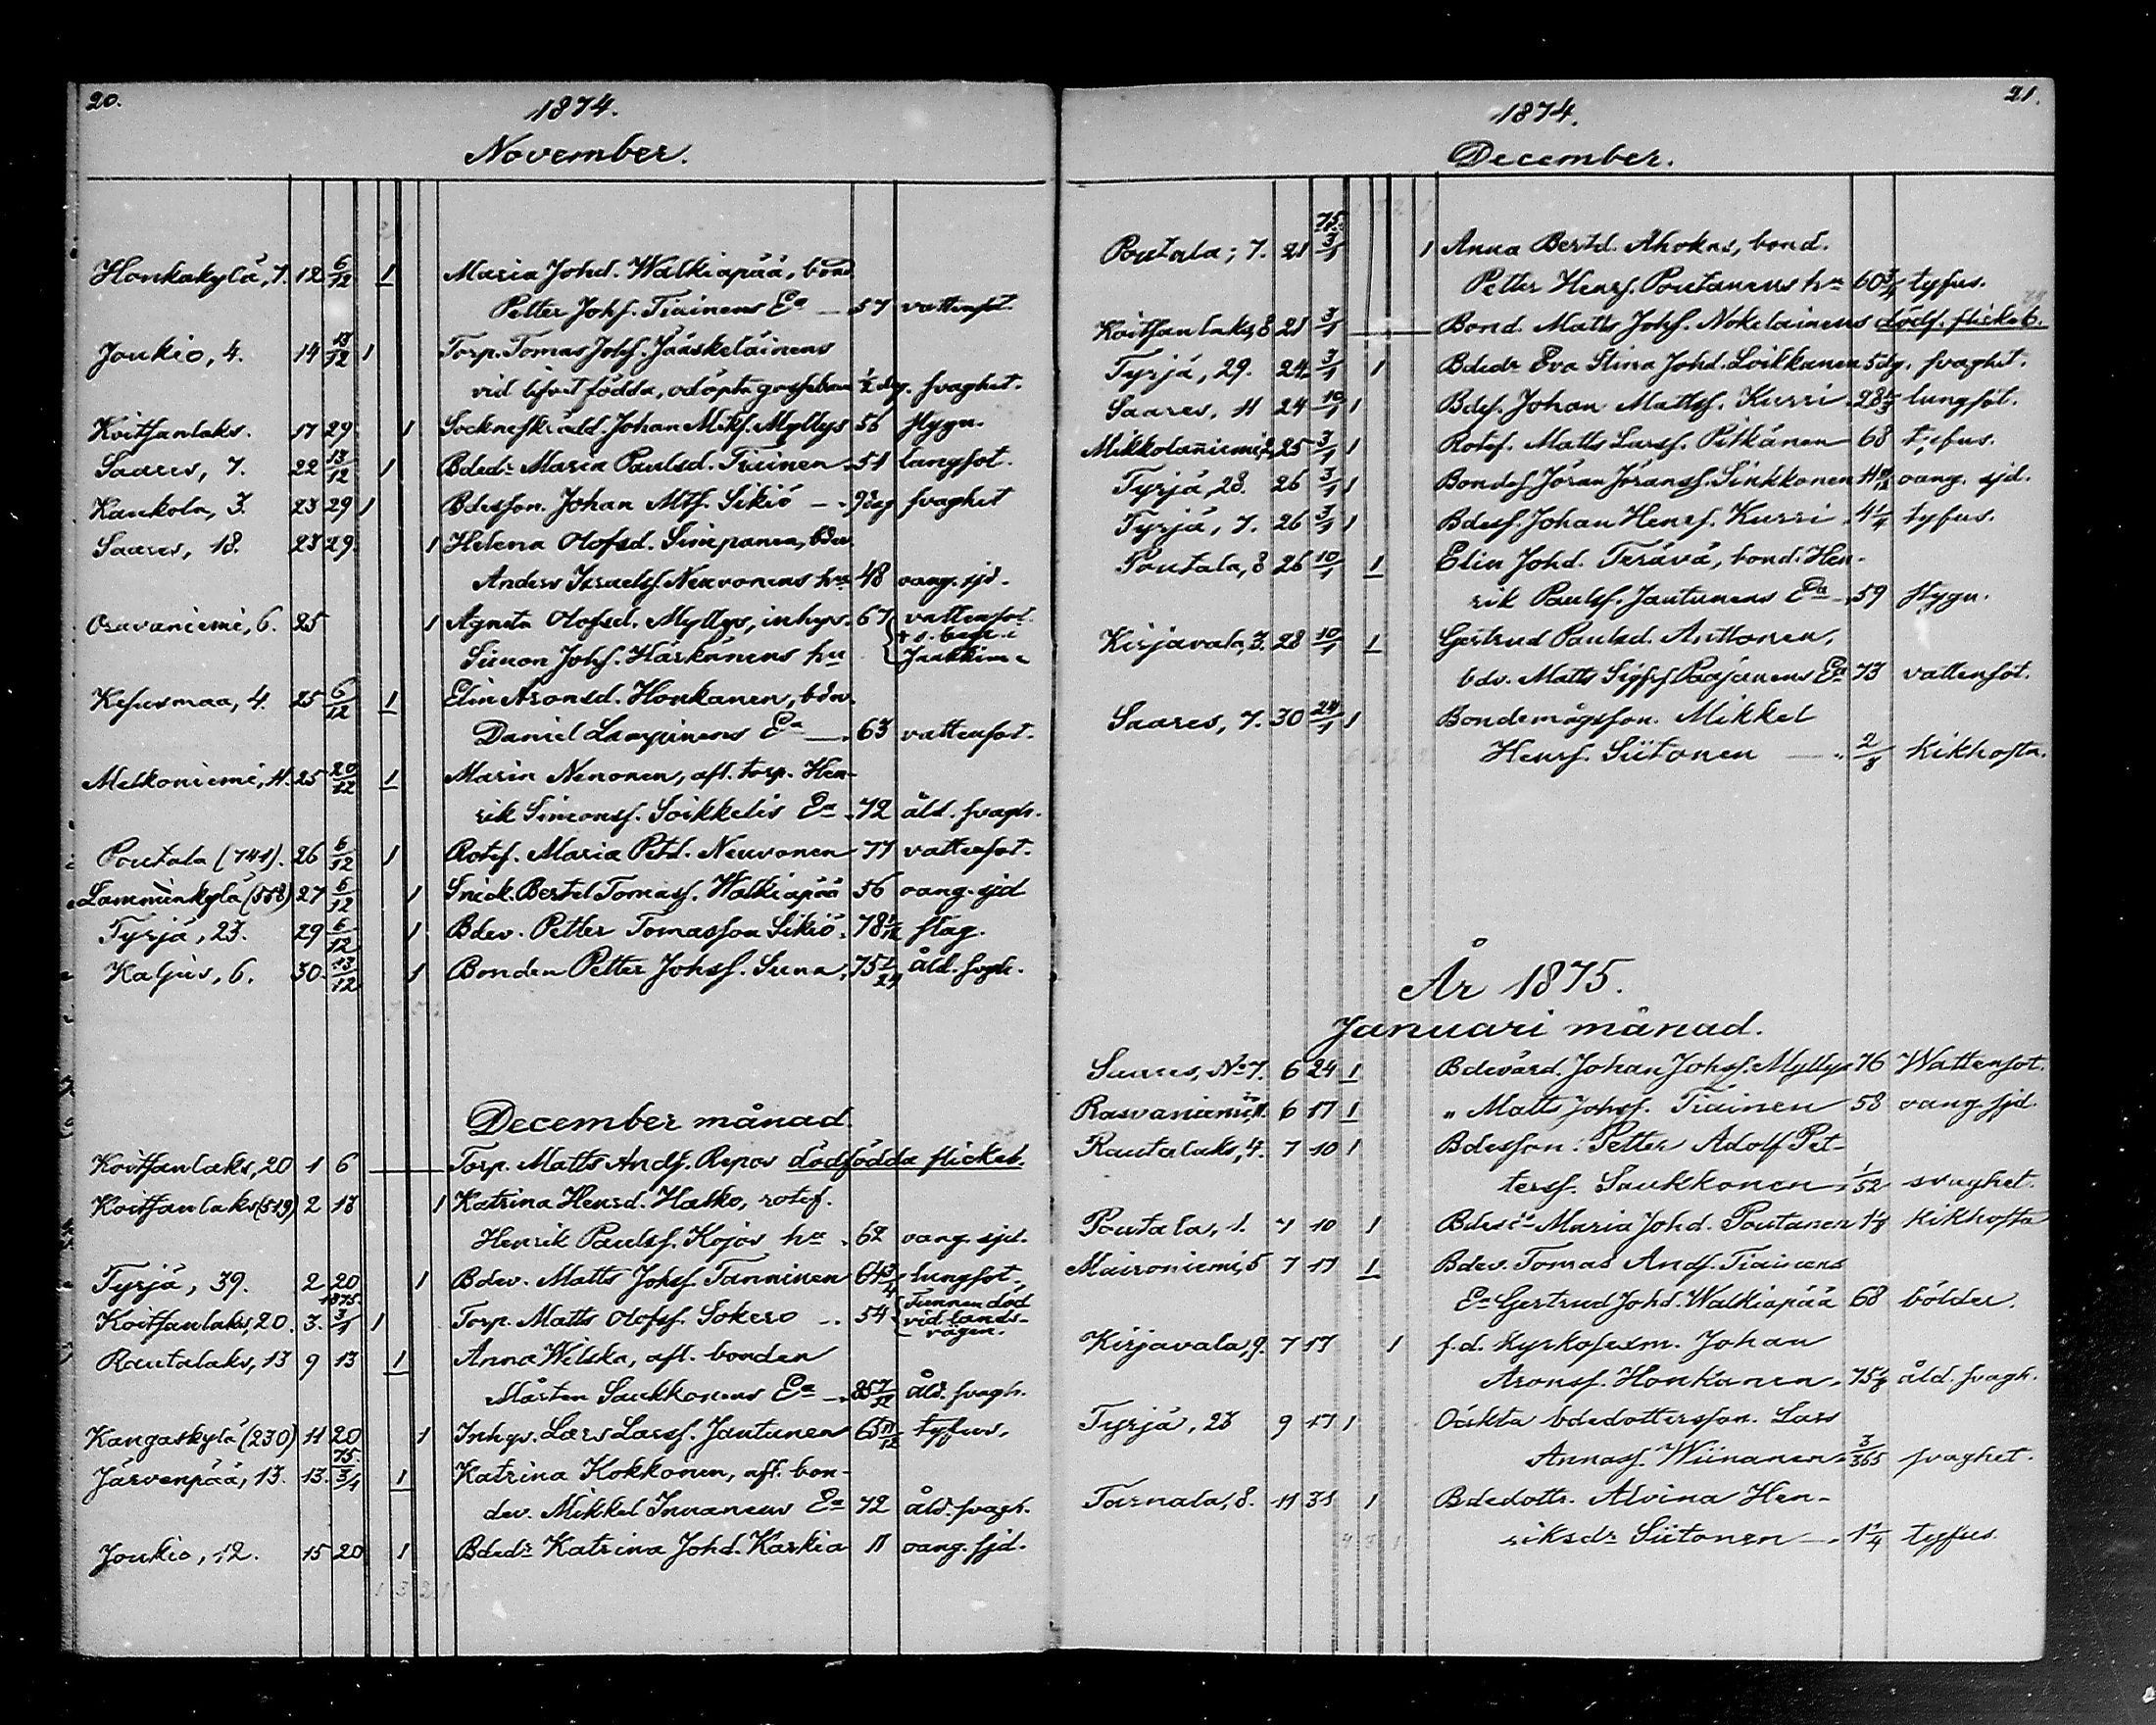 20.
1874.
November.
Honkakylä, 7. 12 6/12 1 Maria Johd. Walkiapää, bond.
Petter Johs. Tiainens Ea — 57 vattensot.
Joukio, 4. 14 13/12 1 Torp. Tomas Johs. Jääskeläinens
vid lifvet födda, odöpta gossebarn ½ dag. svaghet.
Koitsanlaks. 17 29 1 Sockneskrädd. Johan Miks. Myllys 56 stygn.
Saares, 7. 22 13/12 1 Bdedr Maria Paulsd. Tiainen 51 lungsot.
Kaukola, 3. 23 29 1 Bdesson. Johan Mts. Sikiö — 9 dag svaghet
Saares, 18. 23 29. 1 Helena Olofsd. Simpanen, bdev.
Anders Israelss. Neuvonens hu 48 oang. sjd.
Oravaniemi, 6. 25 1 Agneta Olofsd. Myllys, inhys. 67 vattensot.
Simon Johs. Härkönens hu + s. begr. i Jaakkima
Kesusmaa, 4. 25 6/12 1 Elin Aronsd. Honkanen, bdev.
Daniel Lampinens Ea — 63 vattensot.
Melkoniemi, 11. 25 20/12 1 Maria Nenonen, afl. torp. Hen-
rik Simonss. Soikkelis Ea 72 åld. svagh.
Poutala (741). 26 6/12 1 Rotef. Maria Petd. Neuvonen 77 vattensot.
Lamminkylä (558) 27 6/12 1 Snick. Bertel Tomass. Walkiapää 56 oang. sjd
Tyrjä, 23. 29 6/12 1 Bdev. Petter Tomasson Sikiö. 78 slag.
Kaljus, 6. 30. 13/12 1 Bonden Petter Johss. Suna, 75 åld. svgh.
December månad
Koitsanlaks, 20 1 6 — Torp. Matts Ands. Repos dödfödda flickeb.
Koitsanlaks (519) 2 13 1 Katrina Henrd. Hatko, rotef.
Henrik Paulss. Kojos hu 62 oang. sjd.
Tyrjä, 39. 2 20 1 Bdev. Matts Johs. Tanninen 64 3/4 lungsot.
Koitsanlaks, 20. 3. 1875. 3/1 1 Torp. Matts Olofss. Sokero — 54 Funnen död vid lands- vägen.
Rautalaks, 13 9 13 1 Anna Wilska, afl. bonden
Mårten Saukkonens Ea — 85 7/12 åld. svagh.
Kangaskylä (230) 11 20 1 Inhys. Lars Larss. Jantunen 65 11/12 tyfus.
Järvenpää, 13. 13. 75. 3/1 1 Katrina Kokkonen, afl. bon-
dev. Mikkel Innanens Ea 72 åld. svagh.
Joukio, 12. 15 20 1 Bdedr Katrina Johd. Karkia 11 oang. sjd.
21.
1874.
December.
Poutala, 7. 21 75. 3/1 1 Anna Bertd. Ahokas, bond.
Petter Henrs. Poutanens hu 60 3/4 tyfus.
Koitsanlaks, 8 21 3/1 — Bond. Matts Johs. Nokelainens dödf. flickeb.
Tyrjä, 29. 24 3/1 1 Bdedr Eva Stina Johd. Loikkanen 5 dg. svaghet.
Saares, 11 24 10/1 1 Bdes. Johan Mattss. Kurri 28 lungsot.
Mikkolaniemi, 2, 25 3/1 1 Rotef. Matts Larss. Pitkänen 68 tyfus.
Tyrjä, 28. 26 3/1 1 Bondes. Jöran Jöranss. Sinkkonen oang. sjd.
Tyrjä, 7. 26 3/1 1 Bdess. Johan Henrs. Kurri 4 1/4 tyfus.
Poutala, 8 26 10/1 1 Elin Johd. Terävä, bond. Hen-
rik Paulss. Jantunens Ea 59 stygn.
Kirjavala, 3. 28 10/1 1 Gertrud Paulsd. Anttonen,
bdv. Matts Sigfrs. Paajanens Ea 73 vattensot.
Saares, 7. 30 24/1 1 Bondemågsson. Mikkel
Henrs. Siitonen — kikhosta.
År 1875.
Januari månad.
Saares, No 7. 6 24 1 Bdevärd. Johan Johss. Myllys 76 Wattensot.
Rasvaniemi, 11. 6 17 1 " Matts Johss. Tiainen 58 oang. sjd.
Rautalaks, 4. 7 10 1 Bdesson: Petter Adolf Pet-
terss. Saukkonen 1/52 svaghet.
Poutala, 1. 7 10 1 Bdedr Maria Johd. Poutanen kikhosta
Maironiemi, 5 7 17 1 Bdev. Tomas Ands. Tiainens
Ea Gertrud Johd. Walkiapää 68 bölder.
Kirjavala, 9. 7 17 1 f.d. kyrkosexm. Johan
Aronss. Honkanen. åld. svagh.
Tyrjä, 23 9 17 1 Oäkta bdedottersson. Lars
Annass. Wiinanen. 3/365 svaghet.
Tarnala, 8. 11 31 1 Bdedottr. Alvina Hen-
riksdr Siitonen — 1 1/4 tyfus.